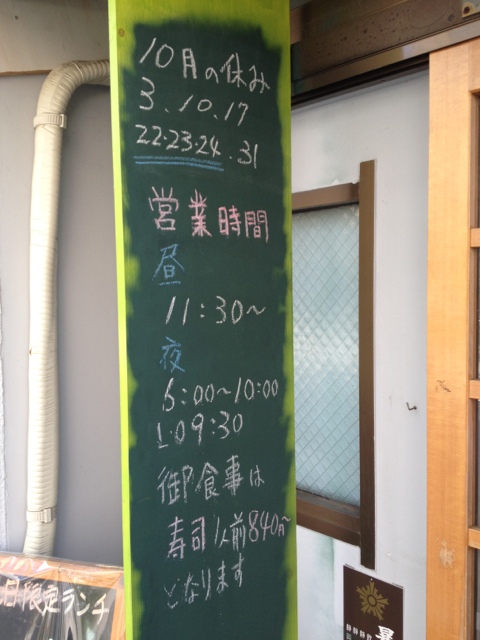 10月の休み
3.10.17
22・23・24.31
営業時間
昼
11:30~
夜
6:00~10:00
L·09:30
御食事は
寿司1人前840円~
となります
日限定ランチ